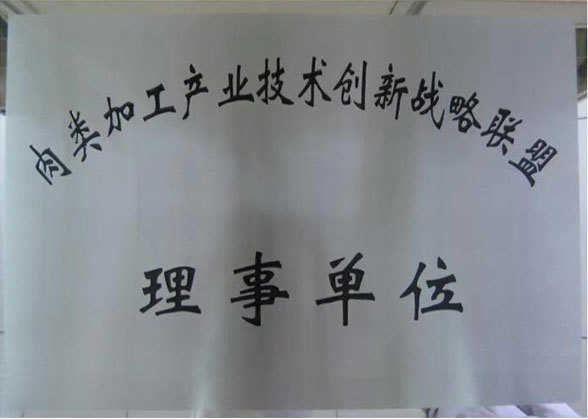 肉类加工产业技术创新战略联盟
理事单位